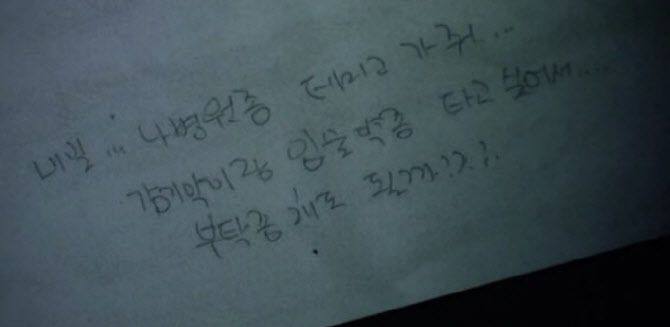 내일... 나 병원좀 데리고 가줘...
감기약이랑 입술약좀 타고 싶어서....
부탁좀 해도 될까?.?.